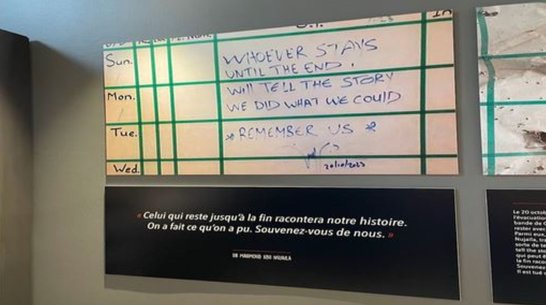 In
Sun.
Mon.
Tue.
Wed.
WHOEVER STAYS
UNTIL THE END,
WILL TELL THE STORY
WE DID WHAT WE COULD
REMEMBER US
20/10/2023
« Celui qui reste jusqu'à la fin racontera notre histoire.
On a fait ce qu'on a pu. Souvenez-vous de nous. »
Le 20 octo
l'évacuation
bande de G
rester avec
Parmi eux,
Nujaila, tra
sorte de te
tell the sto
qui peut ê
la fin racon
Souvenez-v
Il est tué